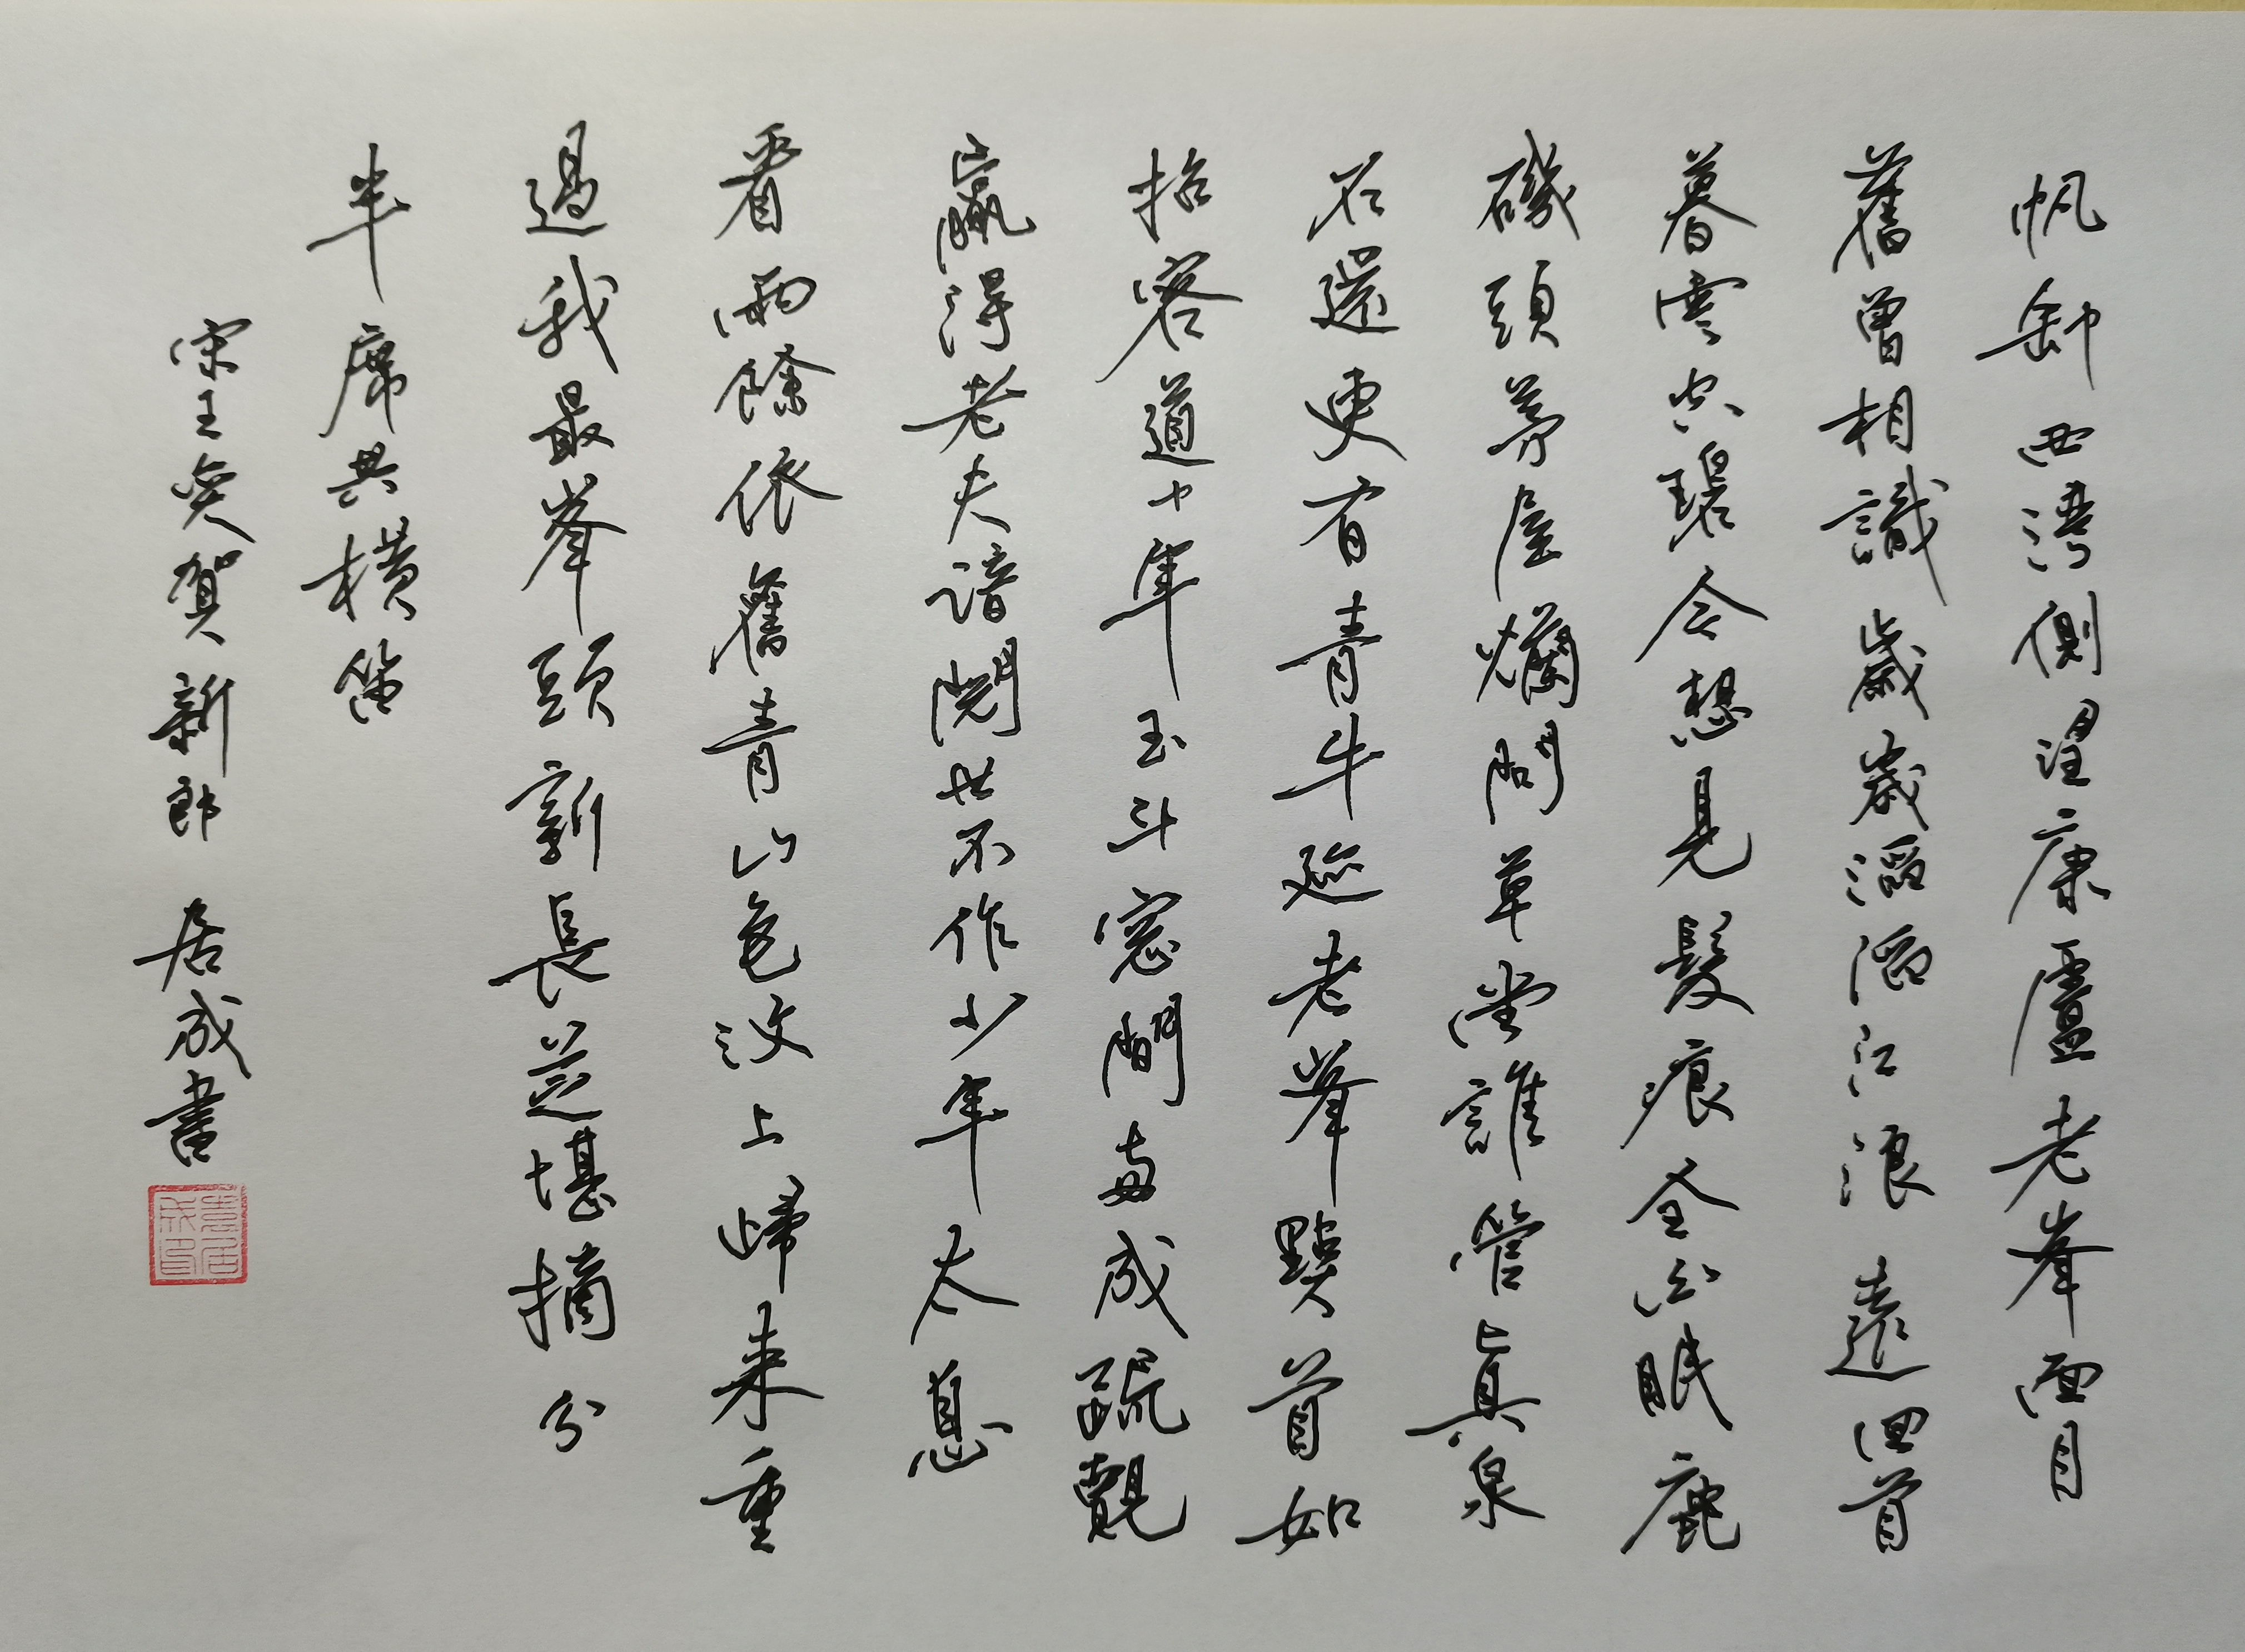 帆卸西灣側望康廬老峯面目
舊曾相識歲歲滔滔江浪遠回首
暮雲空碧令想見髮痕全公眠鹿
磯頭茅屋爛問草堂誰管真泉
石還更有青牛迹老峯點首如
招客道十年玉斗窓間每成疏觀
贏得老夫諳閱世不作少年太息
看雨餘依舊青山色汶上歸来重
過我最峯頭新長芝堪摘分
半席共橫笛
宋王奕賀新郎 居成書